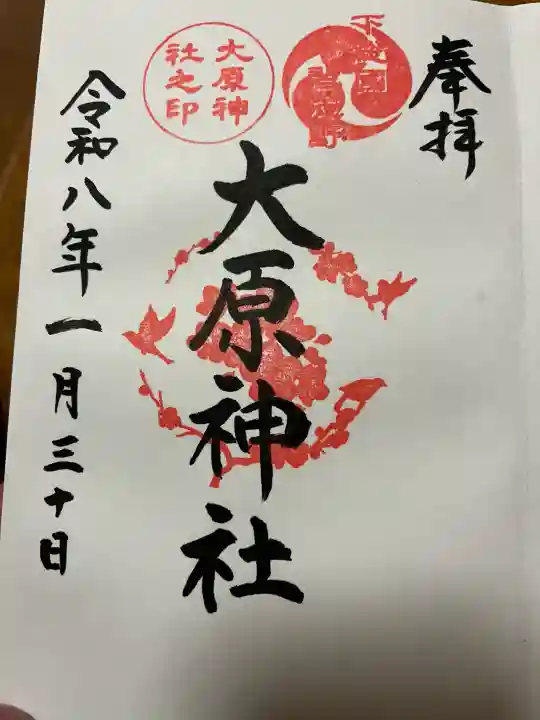 奉拝
下総国
習志野
大原神社
大原神
社之印
令和八年一月三十日